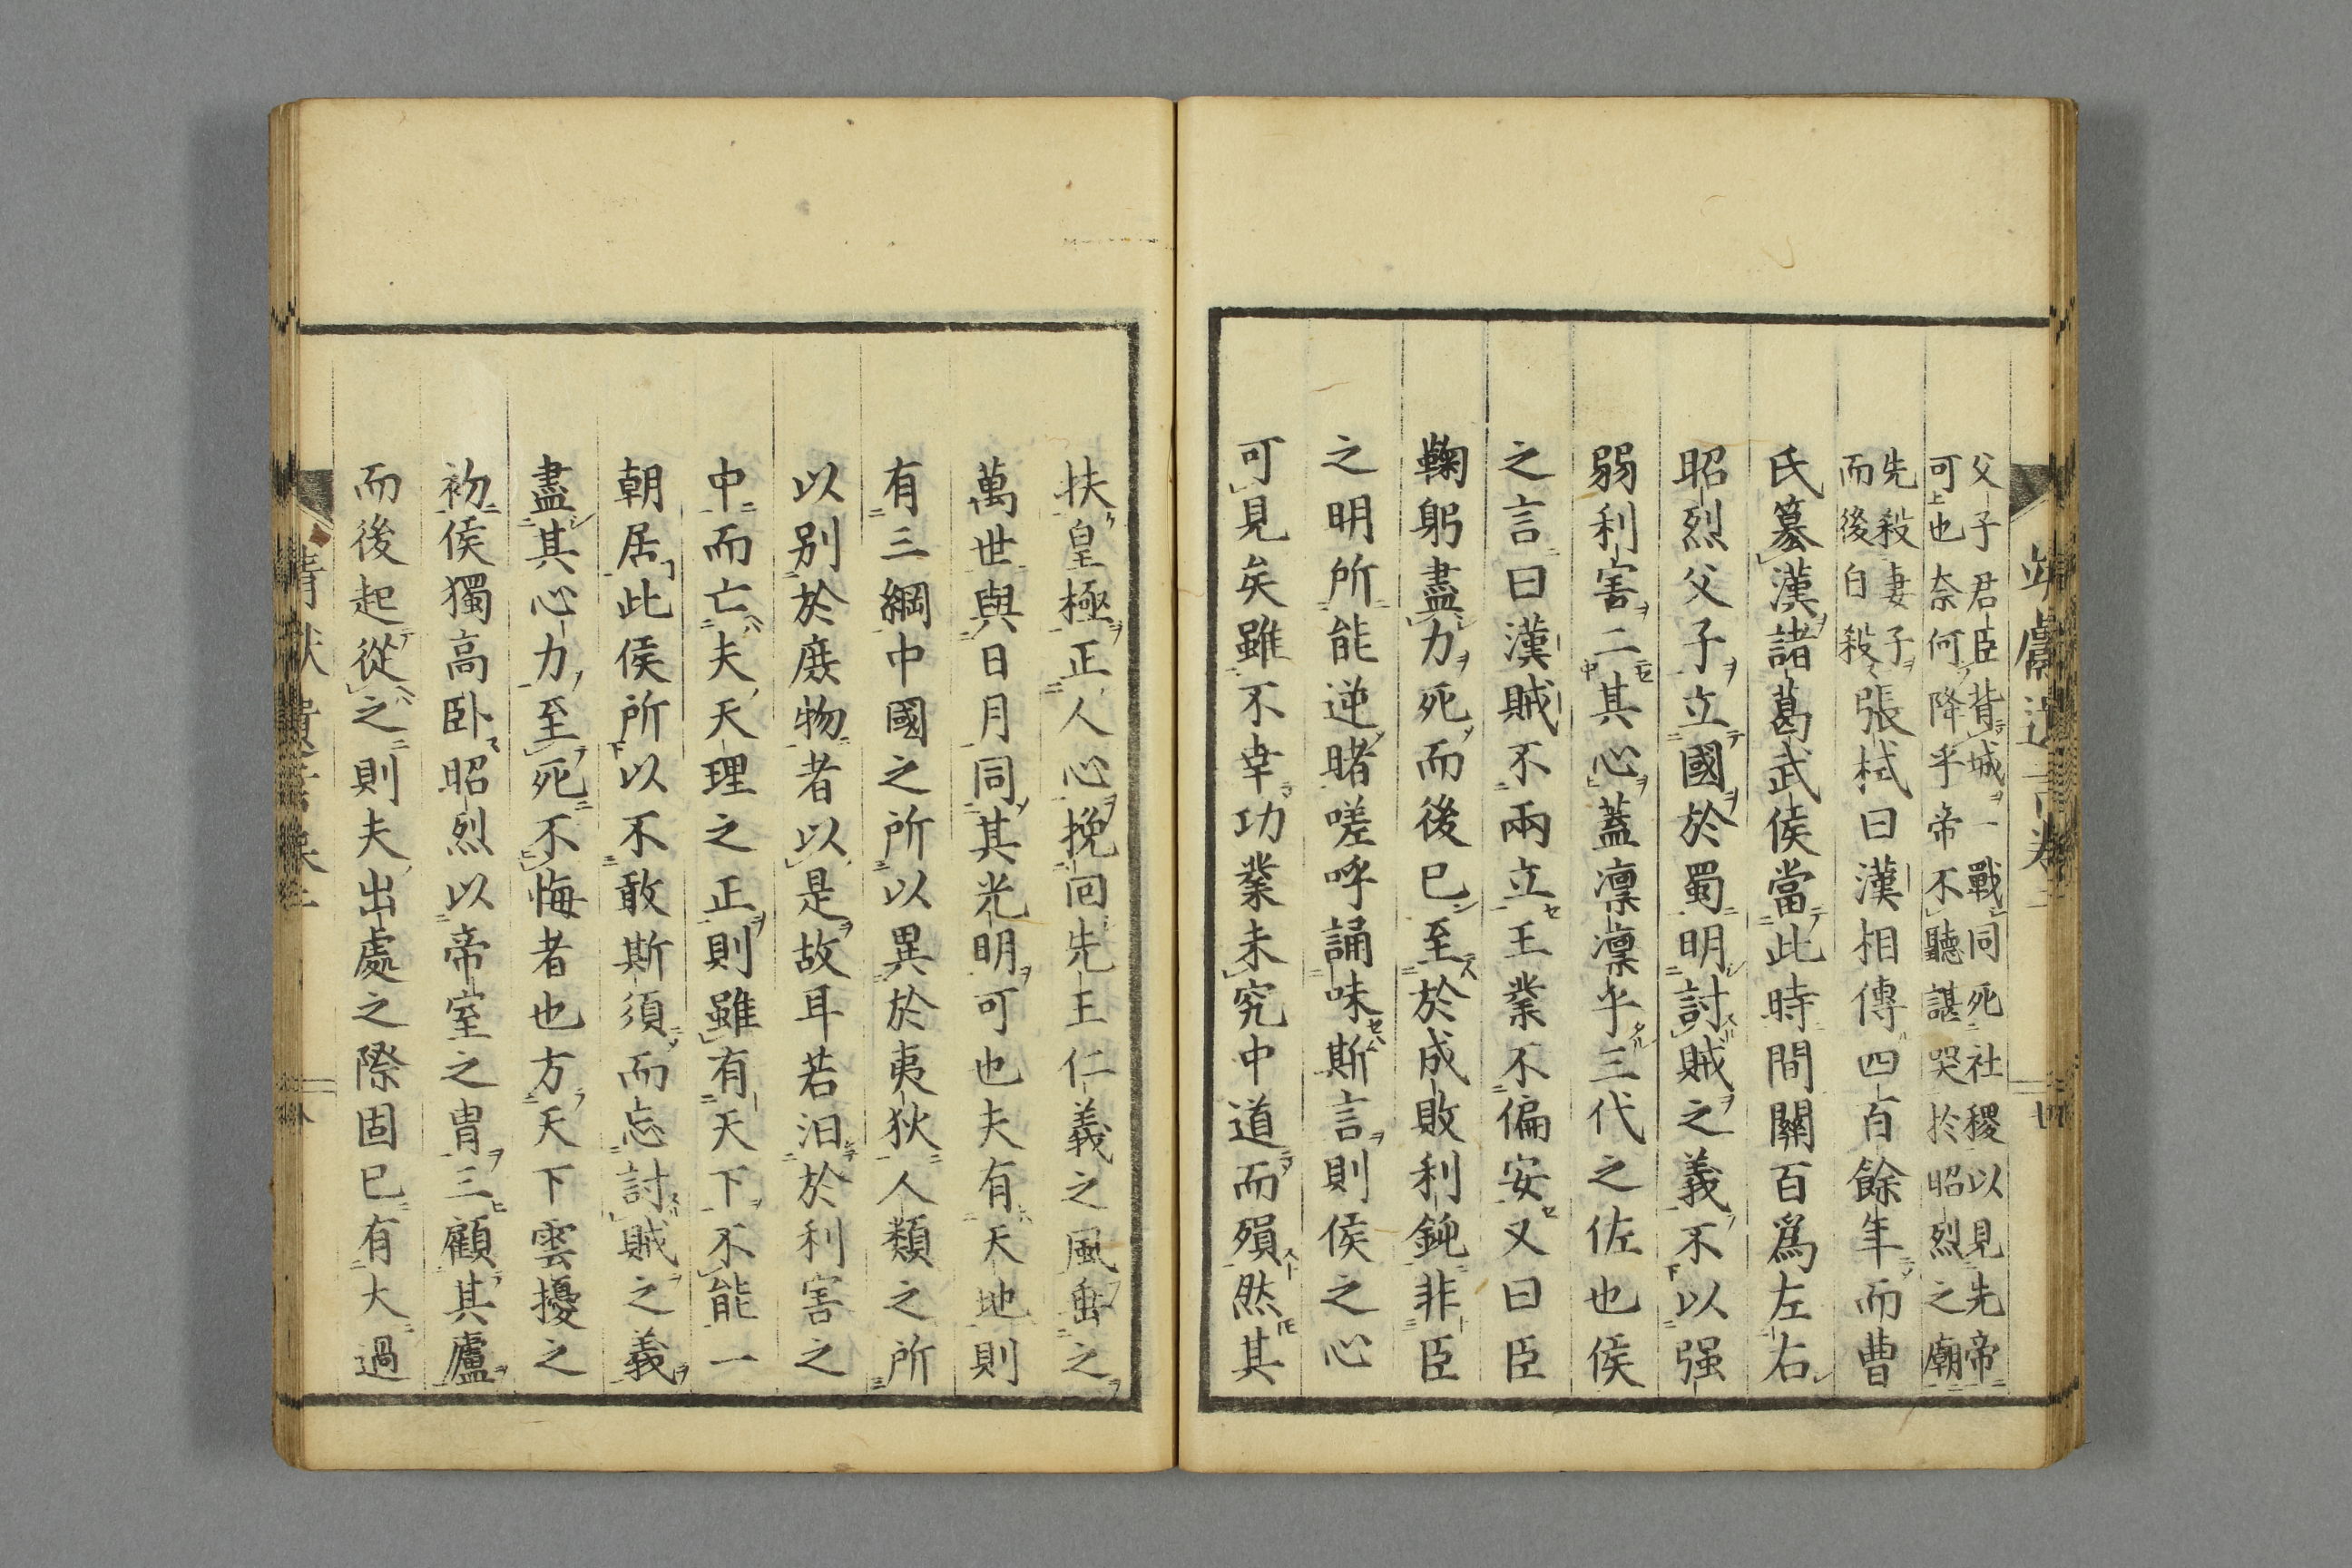 父子君臣背城一戰同死社稷以見先帝
可也奈何降乎帝不聽諶哭於昭烈之廟
先殺妻子
而後自殺
張栻曰漢相傳四百餘年而曹
氏簒漢諸葛武侯當此時間關百爲左右
昭烈父子立國於蜀明討賊之義不以强
弱利害二其心蓋凛凛乎三代之佐也侯
之言曰漢賊不兩立王業不偏安又曰臣
鞠躬盡力死而後已至於成敗利鈍非臣
之明所能逆睹嗟呼誦味斯言則侯之心
可見矣雖不幸功業未究中道而殞然其
扶皇極正人心挽回先王仁義之風垂之
萬世與日月同其光明可也夫有天地則
有三綱中國之所以異於夷狄人類之所
以别於庶物者以是故耳若汨於利害之
中而亡夫天理之正則雖有天下不能一
朝居此侯所以不敢斯須而忘討賊之義
盡其心力至死不悔者也方天下雲擾之
初侯獨高卧昭烈以帝室之冑三顧其廬
而後起從之則夫出處之際固已有大過